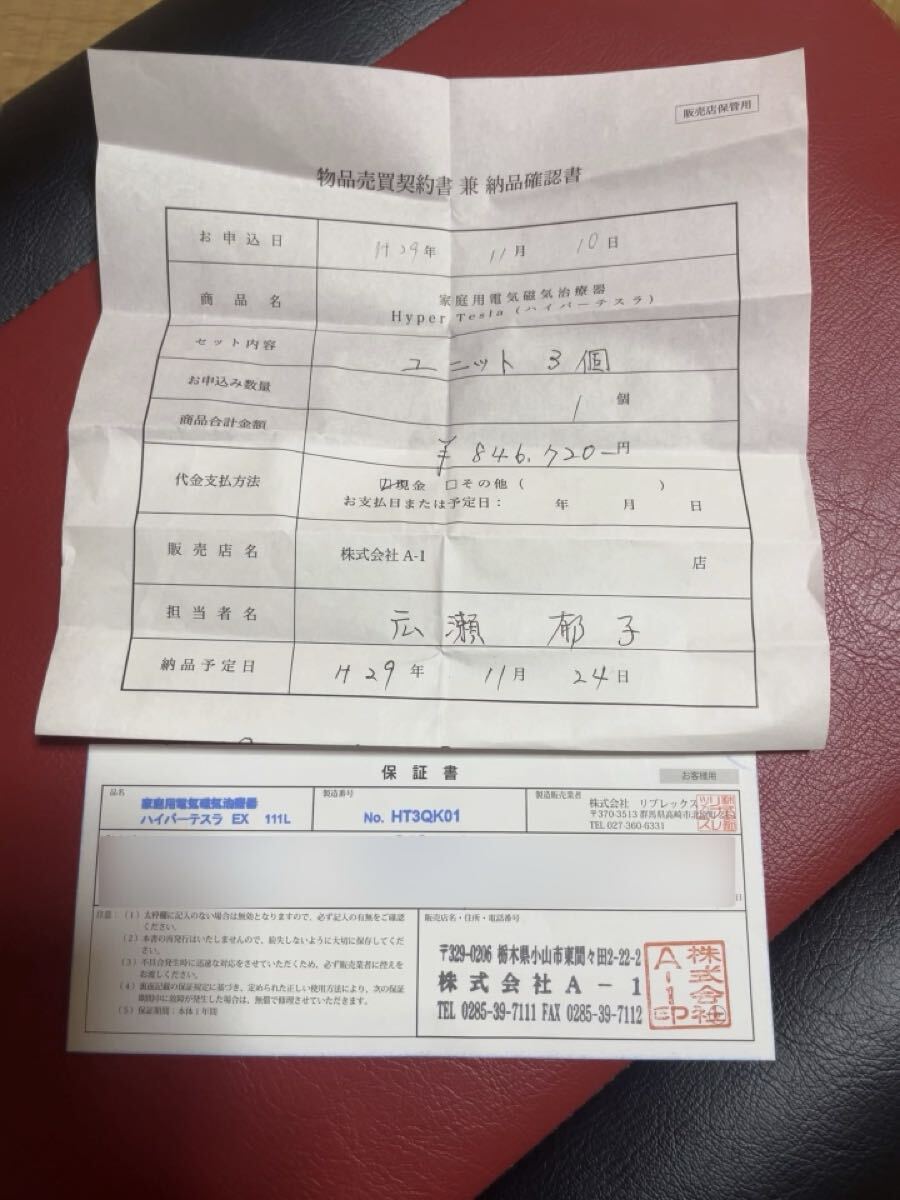 販売店保管用
物品売買契約書 兼 納品確認書
お申込日 H29年 11月 10日
商品名 家庭用電気磁気治療器
Hyper Tesla (ハイパーテスラ)
セット内容 ユニット 3個
お申込み数量 1 個
商品合計金額 ¥846,720-円
代金支払方法 ☑現金 □その他 ( )
お支払日または予定日: 年 月 日
販売店名 株式会社 A-1 店
担当者名 広瀬 郁子
納品予定日 H29年 11月 24日
保証書
お客様用
品名 家庭用電気磁気治療器
ハイパーテスラ EX 111L
製造番号
No. HT3QK01
製造販売業者 株式会社 リブレックス
〒370-3513 群馬県高崎市北
TEL 027-360-6331
日
注意: (1) 太枠欄に記入のない場合は無効となりますので、必ず記入の有無をご確認
ください。
(2) 本書の再発行はいたしませんので、紛失しないように大切に保存してくだ
さい。
(3) 不具合発生時に迅速な対応をさせていただくため、必ず販売業者に控えを
お渡しください。
(4) 裏面記載の保証規定に基づき、定められた正しい使用方法により、次の保証
期間中に故障が発生した場合は、無償で修理させていただきます。
(5) 保証期間:本体1年間
販売店名・住所・電話番号
〒329-0206 栃木県小山市東間々田2-22-2
株式会社A-1
TEL 0285-39-7111 FAX 0285-39-7112
株式会社
A-1